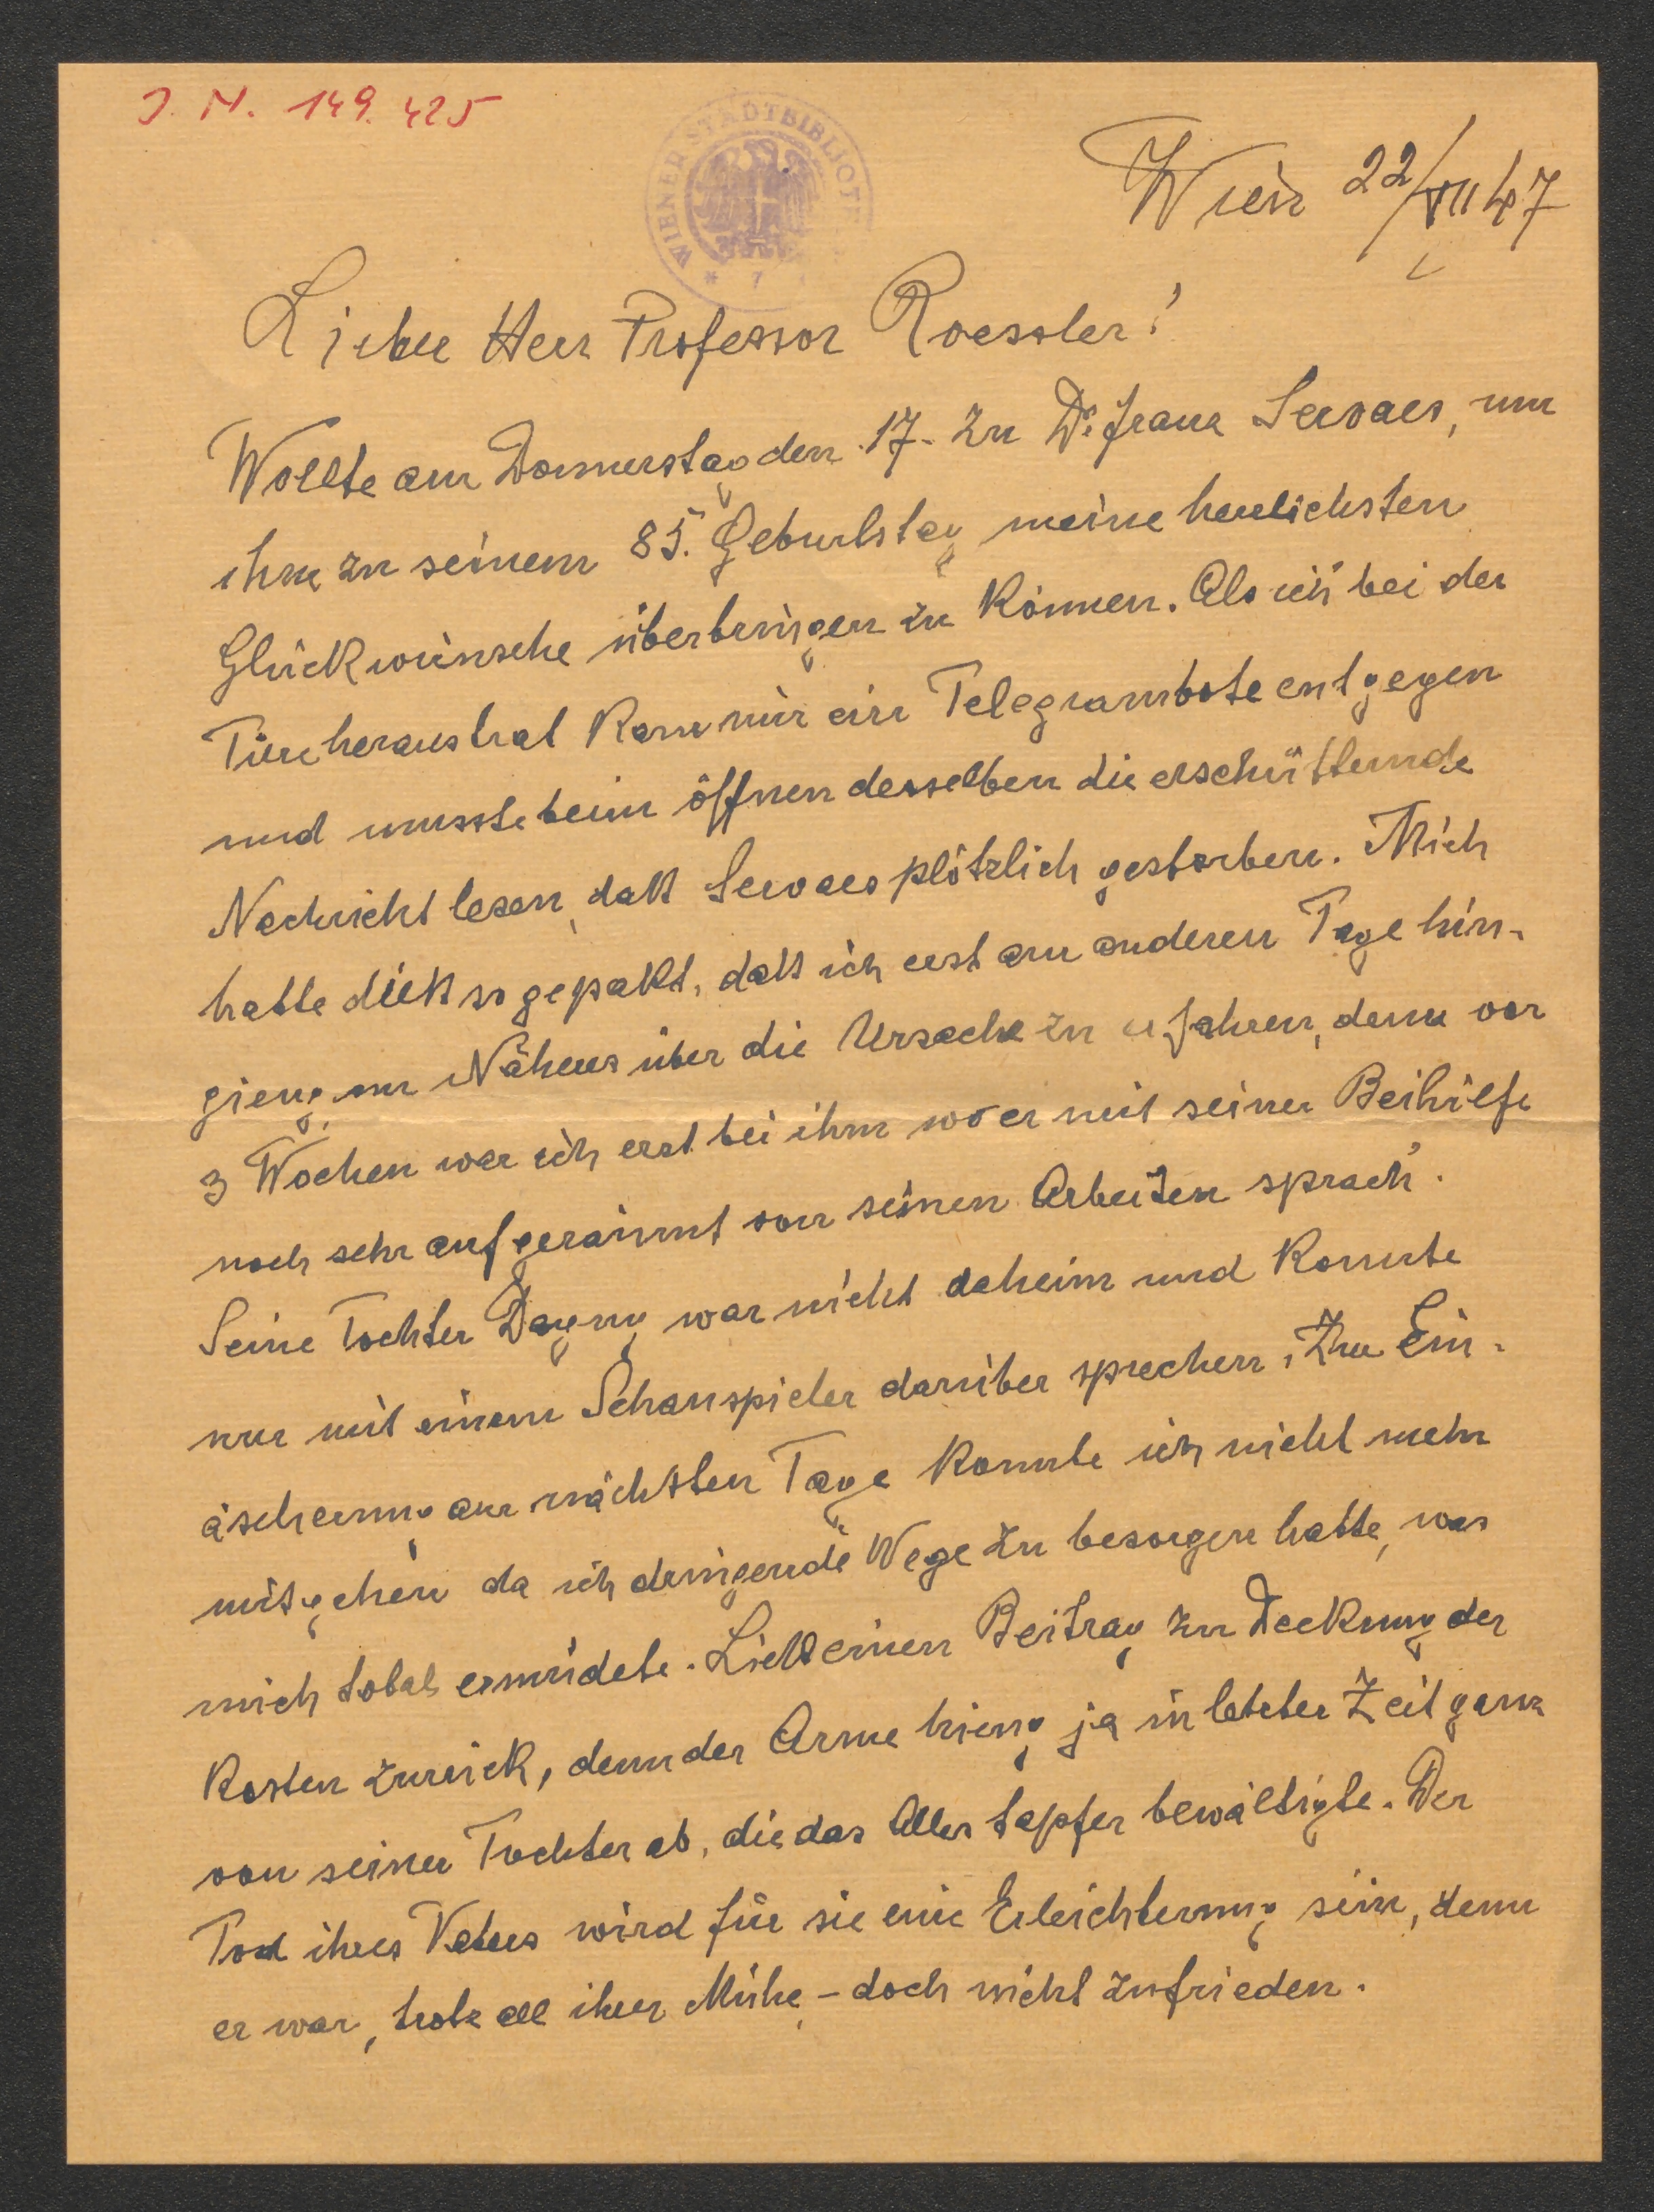 J. N. 149.425
WIENER STADTBIBLIOT
* 7
Wien 22/VII 47
Lieber Herr Professor Roessler!
Wollte am Donnerstag den 17. zu Dr. Franz Servaes, um
ihm zu seinem 85. Geburtstag meine herzlichsten
Glückwünsche überbringen zu können. Als ich bei der
Türe heraustrat kam mir ein Telegrambote entgegen
und musste beim öffnen desselben die erschütternde
Nachricht lesen, daß Servaes plötzlich gestorben. Mich
hatte dieß so gepakt, daß ich erst am anderen Tage hin-
gieng um Näheres über die Ursache zu erfahren, denn vor
3 Wochen war ich erst bei ihm wo er mit seiner Beihilfe
noch sehr aufgeräumt von seinen Arbeiten sprach.
Seine Tochter Dagny war nicht daheim und konnte
nur mit einem Schauspieler darüber sprechen. Zur Ein-
äscherung am nächsten Tage konnte ich nicht mehr
mitgehen da ich dringende Wege zu besorgen hatte, was
mich total ermüdete. Ließ einen Beitrag zur Deckung der
Kosten zurück, denn der Arme hieng ja in letzter Zeit ganz
von seiner Tochter ab, die das Alles tapfer bewältigte. Der
Tod ihres Vaters wird für sie eine Erleichterung sein, denn
er war, trotz all ihrer Mühe, – doch nicht zufrieden.